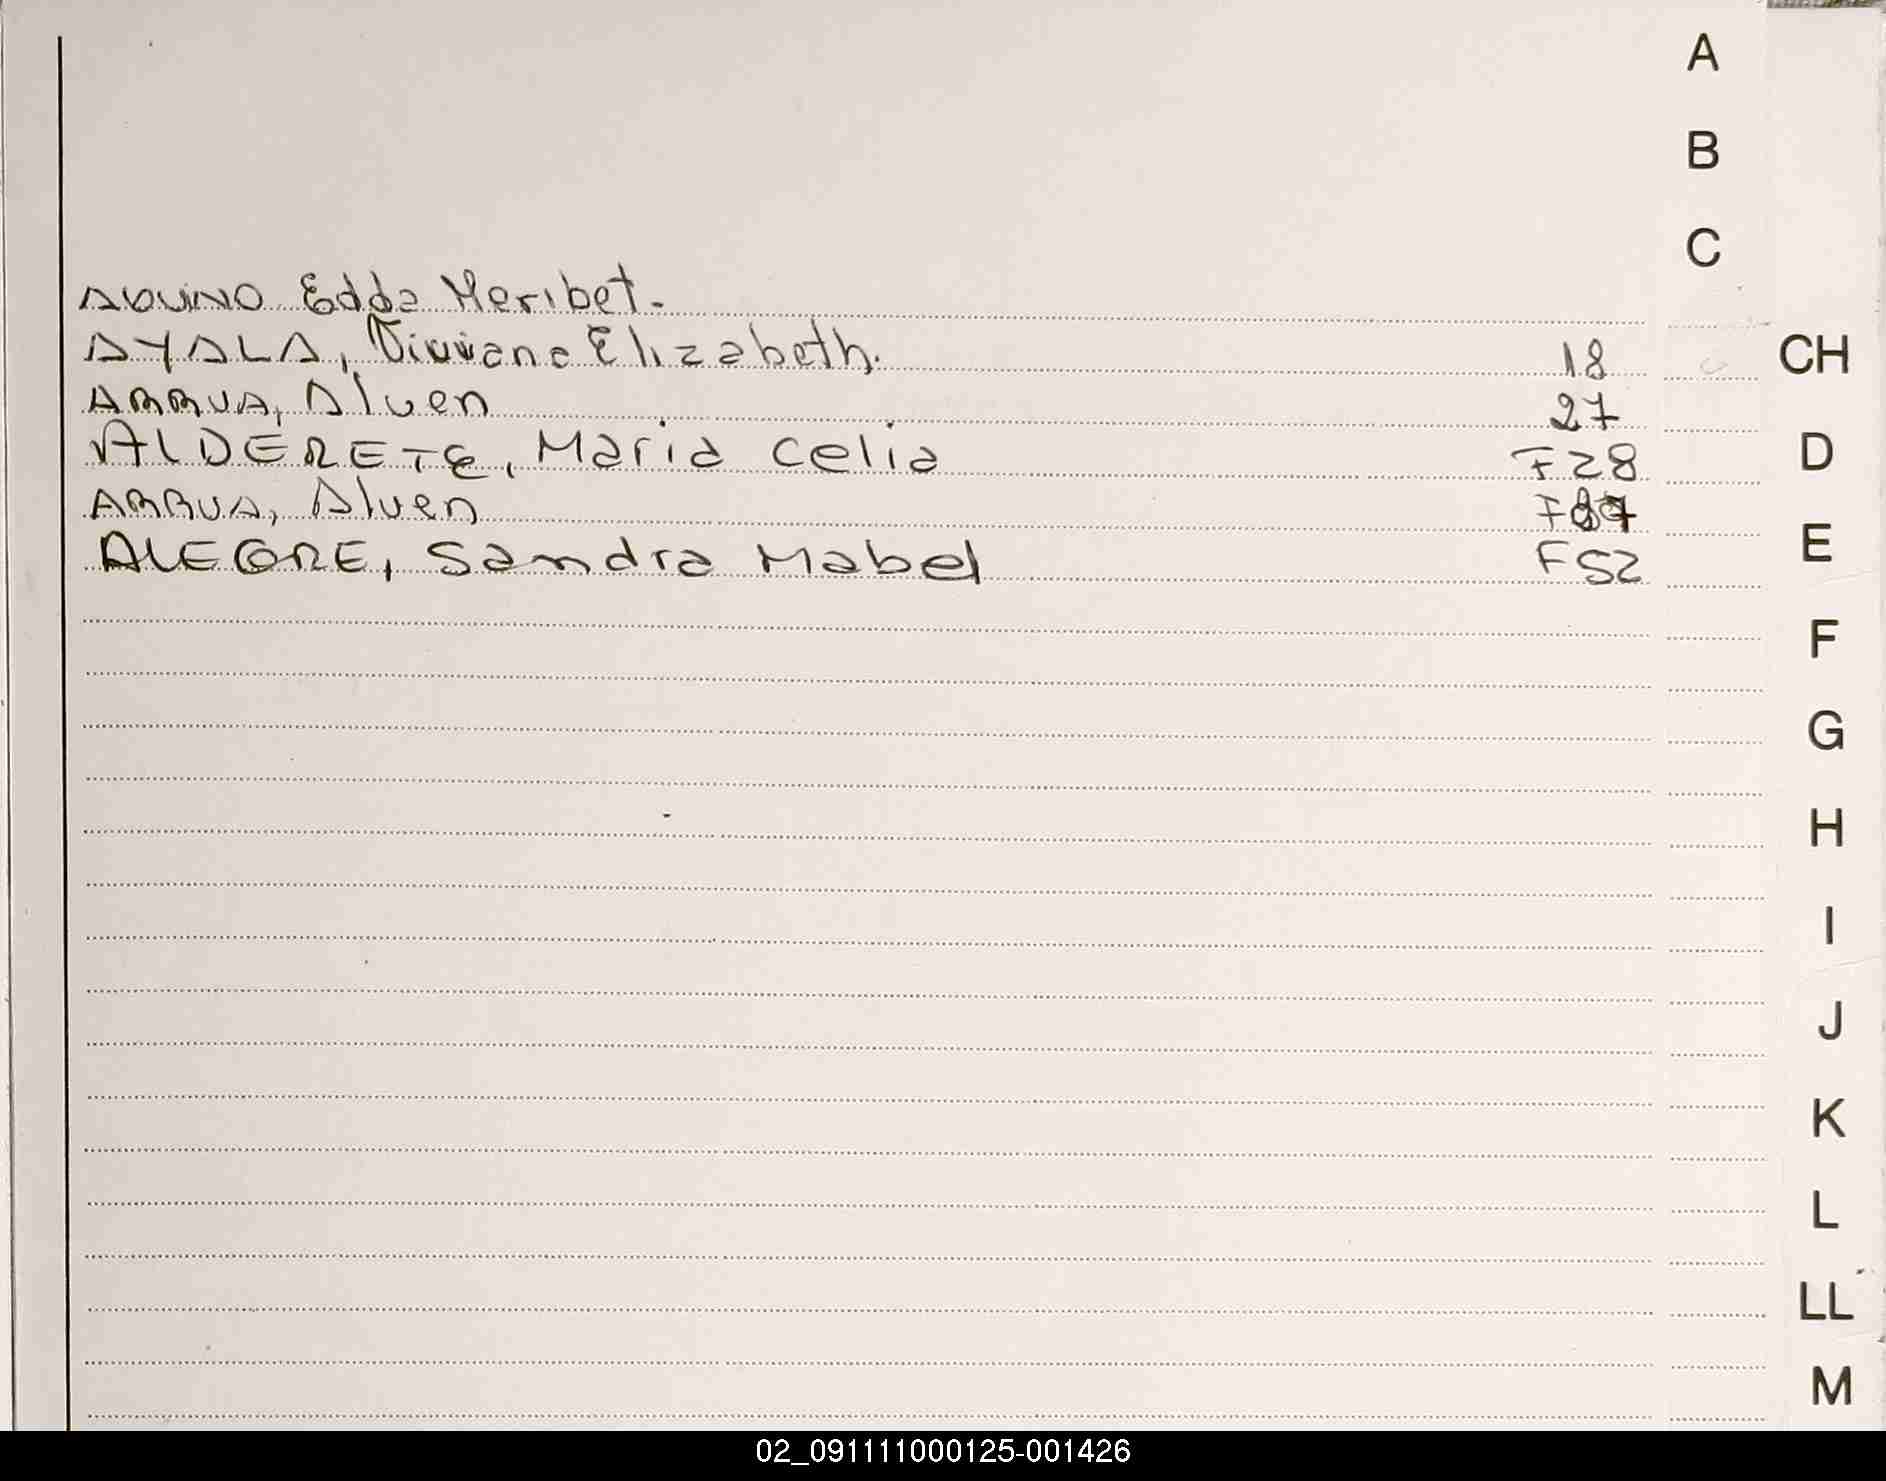 A
B
C
AQUINO Edda Maribet.
AYALA, Viviana Elizabeth. 18 CH
ARRUA, Alven 27
ALDERETE, Maria Celia F28 D
ARRUA, Alven
ALEGRE, Sandra Mabel F52 E
F
G
H
I
J
K
L
LL
M
02_091111000125-001426